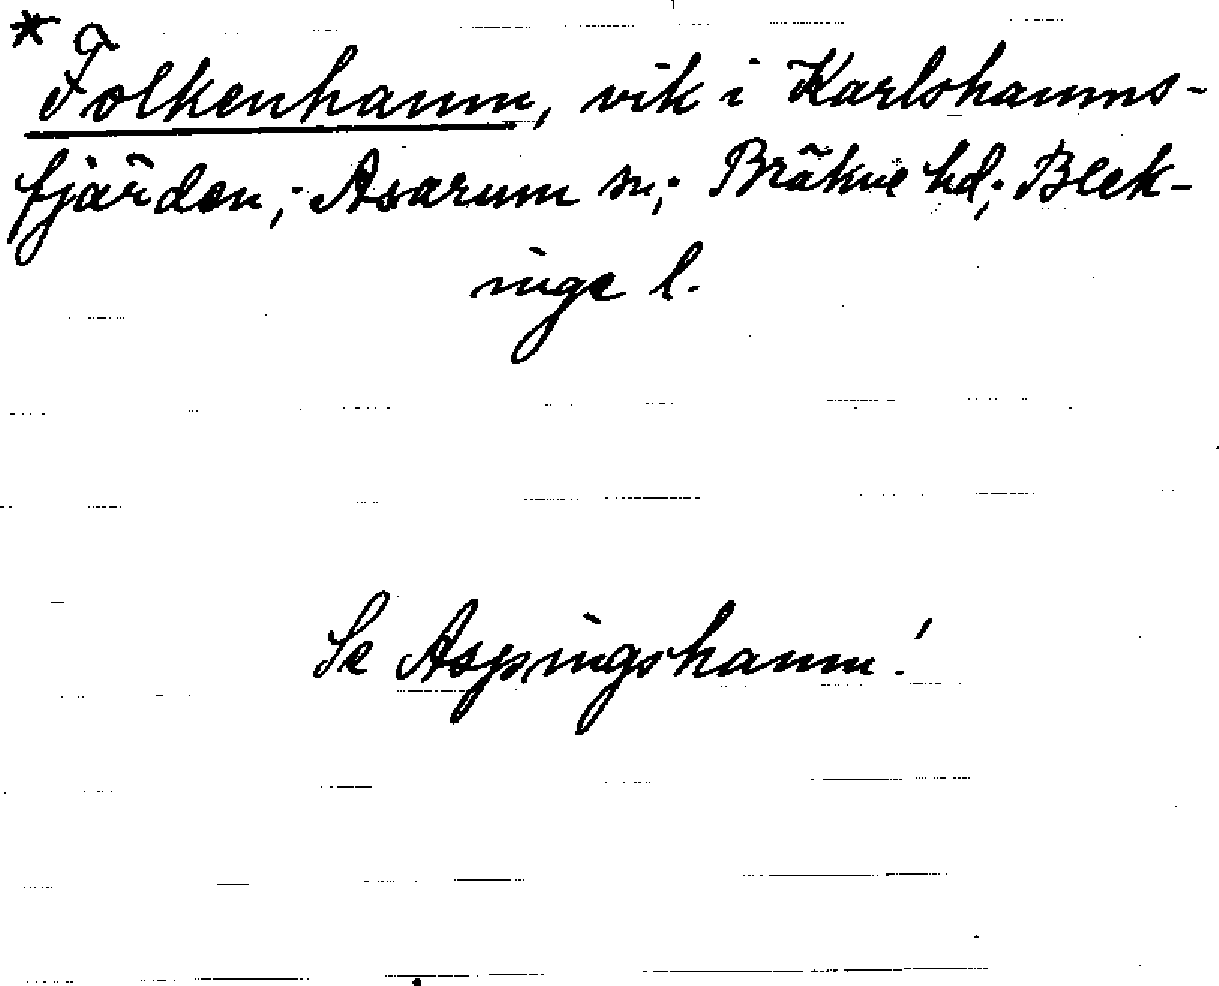 *Folkenhamn, vik i Karlshamns-
fjärden; Asarum sn; Bräkne hd; Blek-
inge l.
Se Aspingshamn!